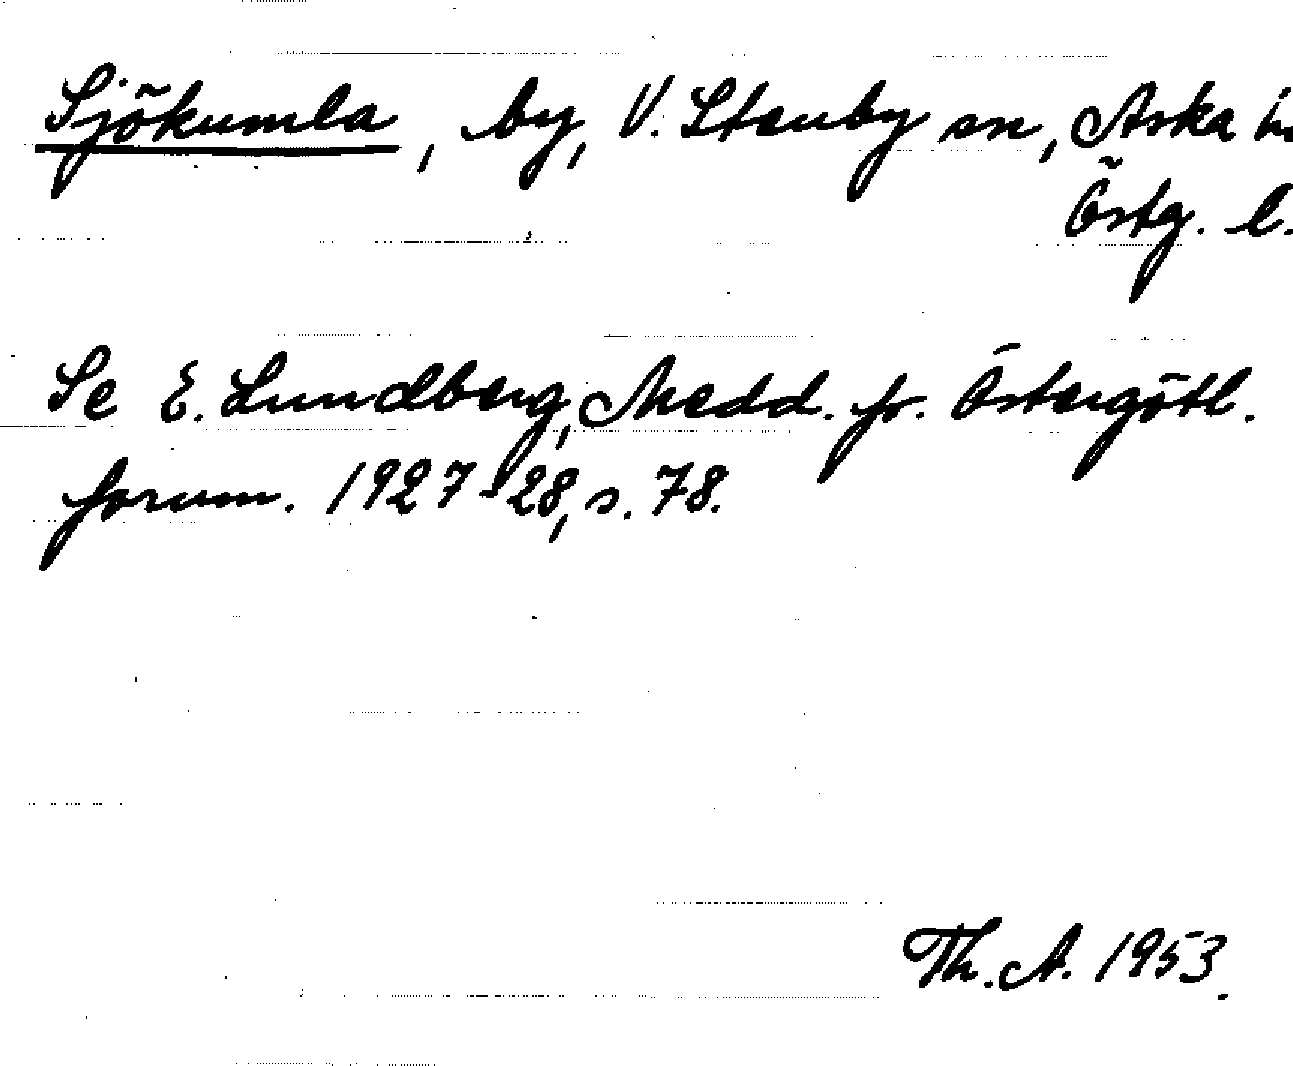 Sjökumla, by, V. Stenby sn, Aska h
Östg. l.
Se E. Lundberg, Medd. fr. Östergötl.
fornm. 1927-28, s. 78.
Th. A. 1953.